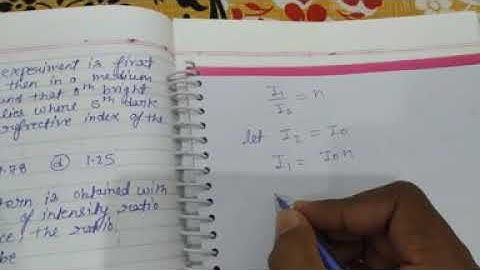 experiment is first
then in a medium
und that 8th bright
lies where 5th dark
refractive index of the
.78 (d) 1.25
tern is obtained with
of intensity ratio
ce, the ratio
be
I₁/I₂ = n
let I₂ = I₀
I₁ = I₀n